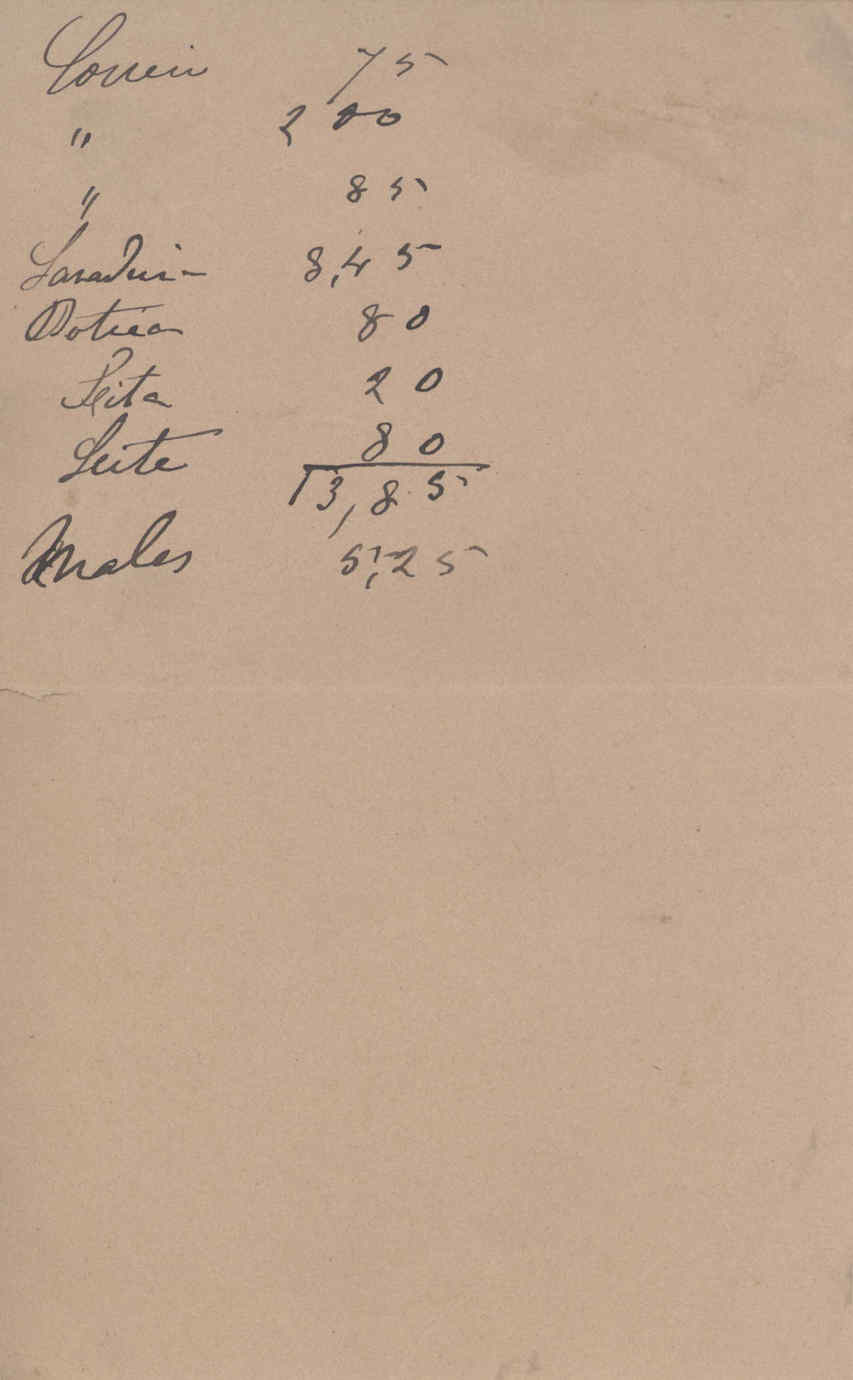 Correio 75
" 200
" 85
Lavadeira 8,45
Botica 80
Fita 20
Leite 80
13,85
Malas 5,25